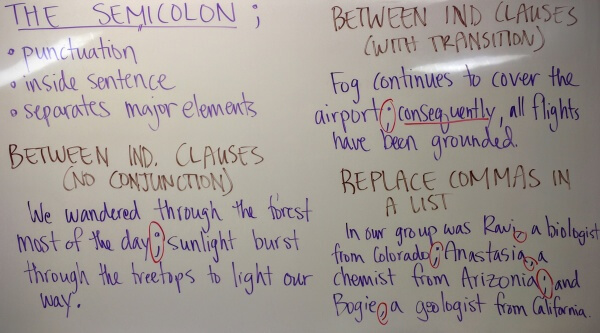 THE SEMICOLON ;
• punctuation
• inside sentence
• separates major elements
BETWEEN IND. CLAUSES
(NO CONJUNCTION)
We wandered through the forest
most of the day ; sunlight burst
through the treetops to light our
way.
BETWEEN IND CLAUSES
(WITH TRANSITION)
Fog continues to cover the
airport ; consequently, all flights
have been grounded.
REPLACE COMMAS IN
A LIST
In our group was Ravi, a biologist
from Colorado ; Anastasia, a
chemist from Arizonia ; and
Bogie, a geologist from California.